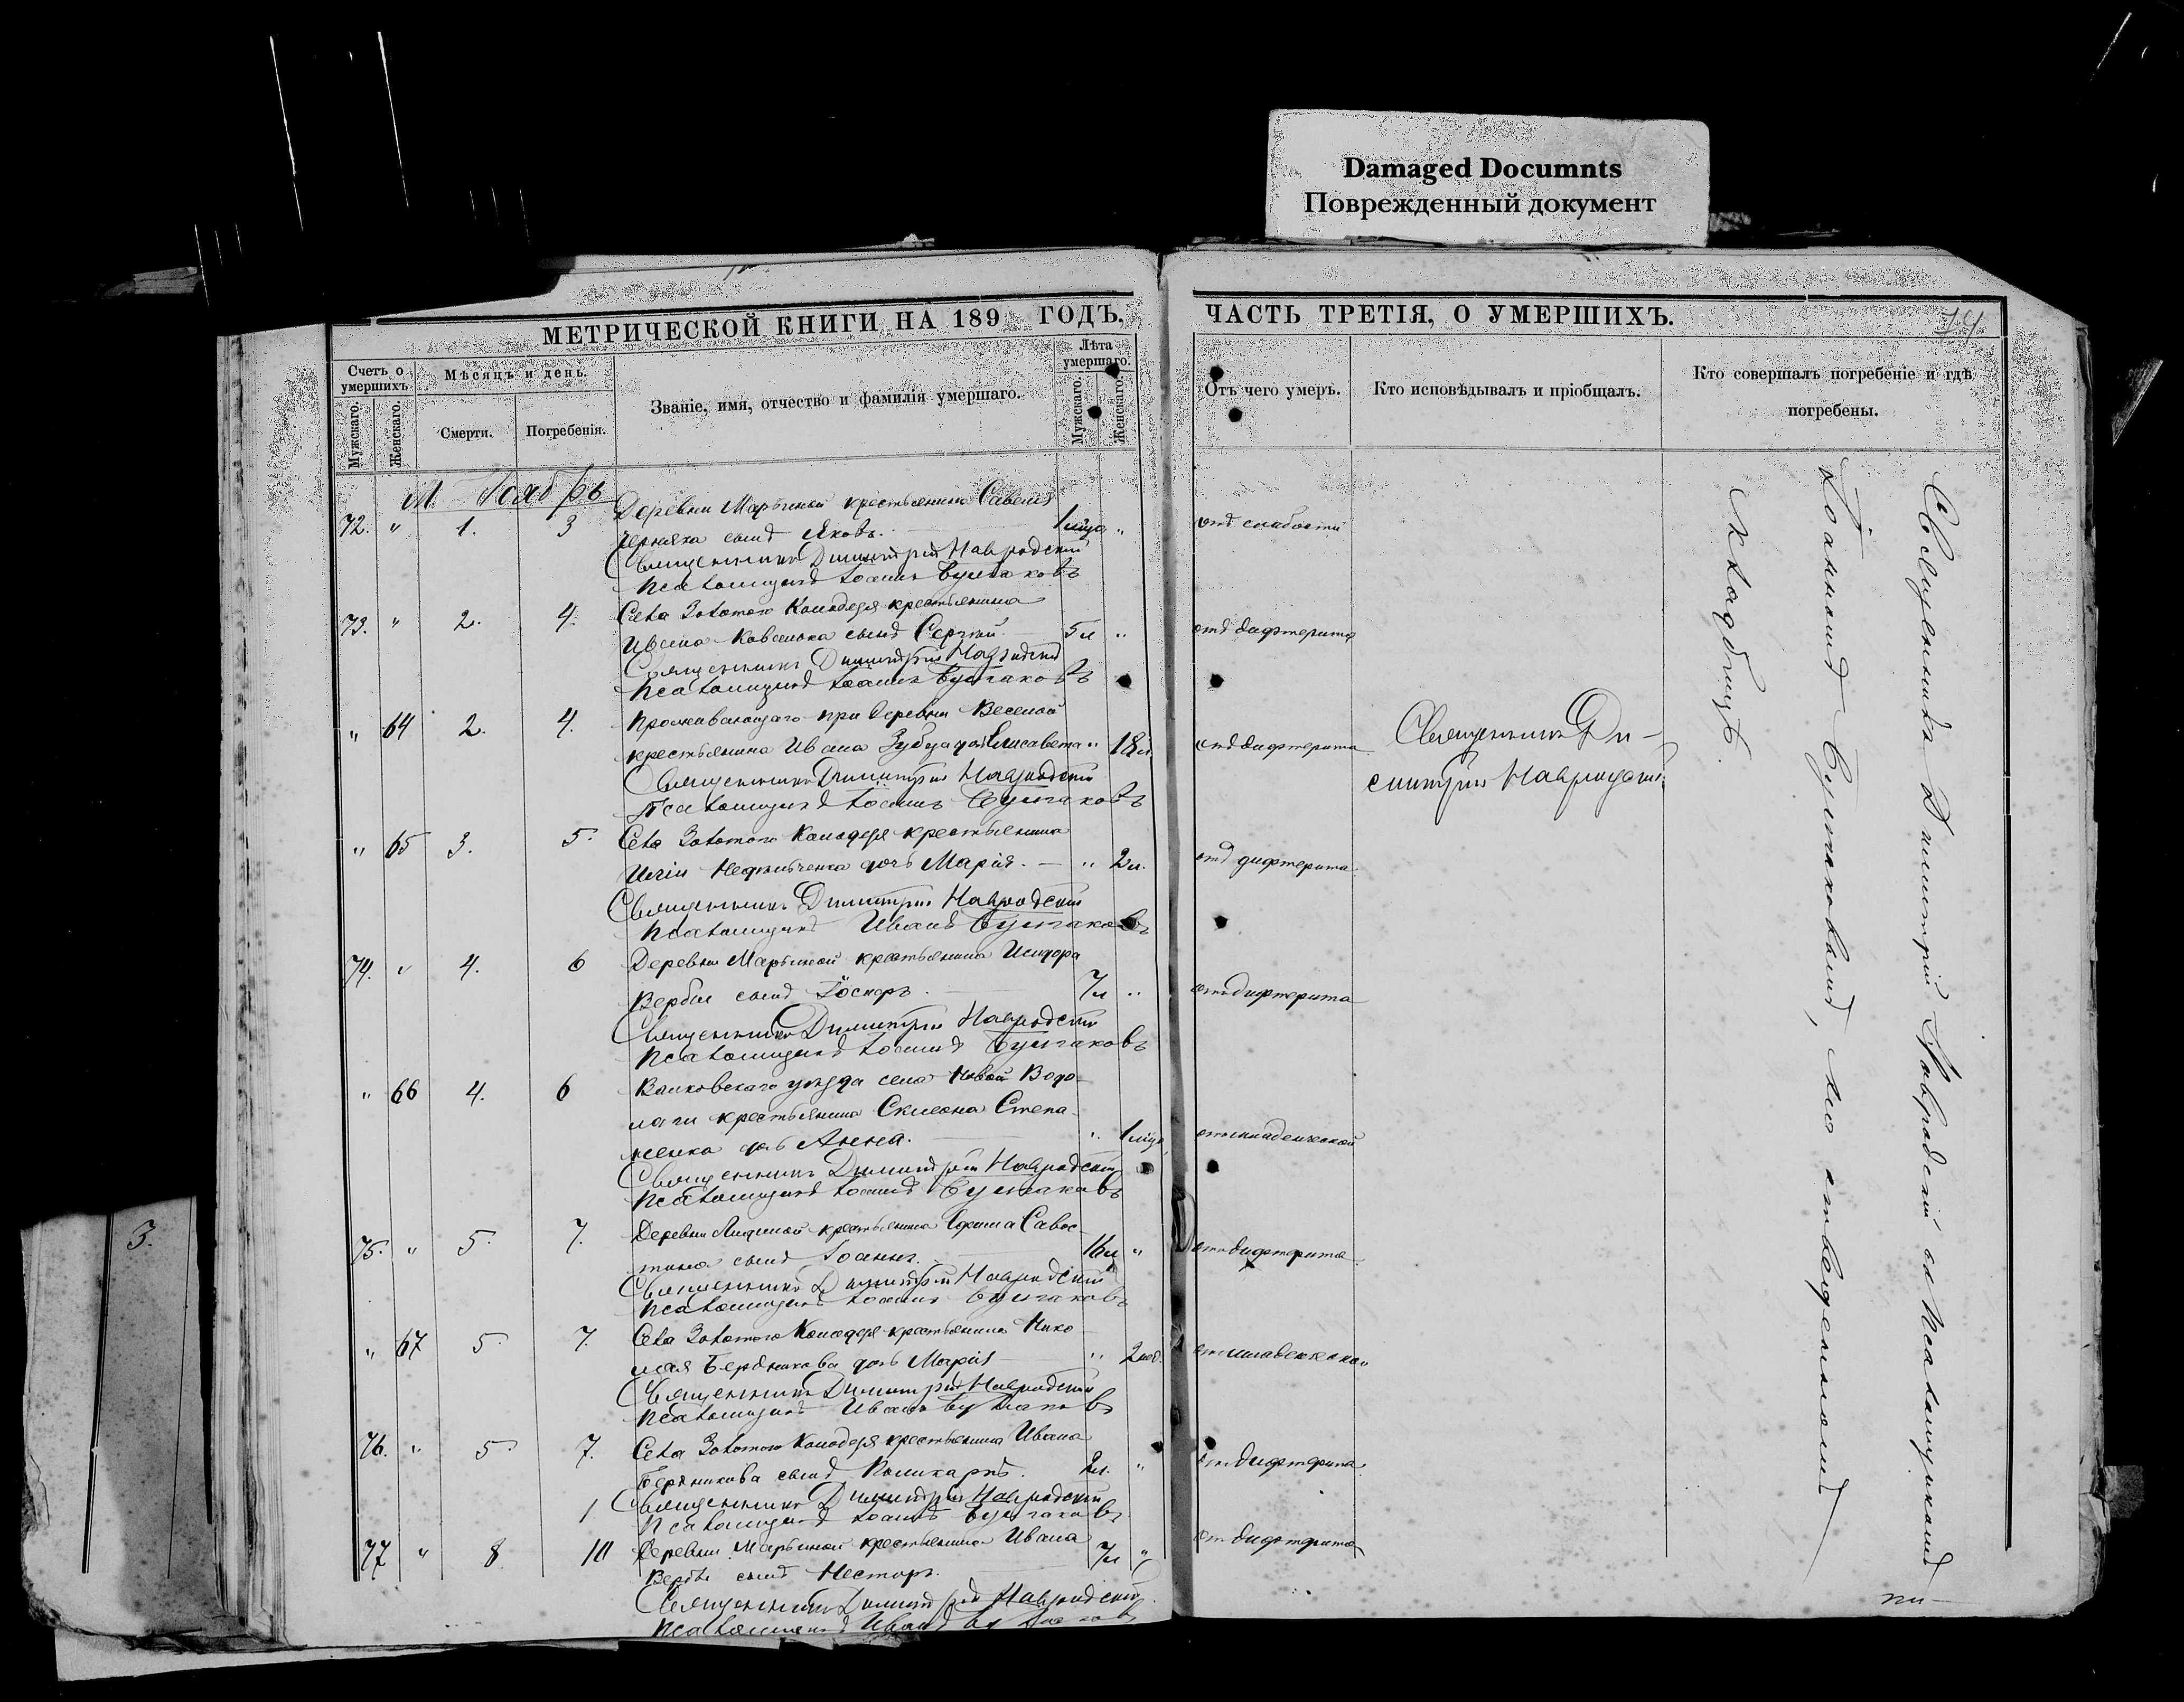 Damaged Documnts
Поврежденный документ
МЕТРИЧЕСКОЙ КНИГИ НА 189 ГОДЪ,
Счетъ о умершихъ
Мужскаго.
Женскаго.
Мѣсяцъ и день.
Смерти.
Погребенія.
Званіе, имя, отчество и фамилія умершаго.
Лѣта умершаго.
Мужскаго.
Женскаго.
ЧАСТЬ ТРЕТІЯ, О УМЕРШИХЪ.
Отъ чего умеръ.
Кто исповѣдывалъ и пріобщалъ.
Кто совершалъ погребеніе и гдѣ
погребены.
М. Ноябрь
72. " 1. 3 Деревни Марьиной крестьянина Савелія
сынъ Яковъ. 1 " отъ слабости
Священникъ Димитрій Навродскій
Псаломщикъ Іоаннъ Булгаковъ
73. " 2. 4. Села Золотого Колодезя крестьянина
Ивана сынъ Сергій. 5 л " отъ дифтерита
Священникъ Димитрій Навродскій
Псаломщикъ Іоаннъ Булгаковъ
" 64 2. 4. Проживающаго при деревни Веселой
крестьянина Ивана Елисавета " 18 л. отъ дифтерита
Священникъ Димитрій Навродскій
Псаломщикъ Іоаннъ Булгаковъ
Священникъ Ди-
митрій Навродскій.
" 65 3. 5. Села Золотого Колодезя крестьянина
дочь Марія. " 2 л. отъ дифтерита
Священникъ Димитрій Навродскій
Псаломщикъ Иванъ Булгаковъ
74. " 4. 6 Деревни Марьиной крестьянина Исидора
Вербы сынъ 7 л " отъ дифтерита
Священникъ Димитрій Навродскій
Псаломщикъ Іоаннъ Булгаковъ
" 66 4. 6 Валковскаго уѣзда села Новой Водо-
лаги крестьянина Степа-
ненка дочь Анна. " 1 отъ младенческой
Священникъ Димитрій Навродскій
Псаломщикъ Іоаннъ Булгаковъ
75. " 5. 7. Деревни крестьянина Савос-
тина сынъ Іоаннъ. 16 л " отъ дифтерита
Священникъ Димитрій Навродскій
Псаломщикъ Іоаннъ Булгаковъ
" 67 5. 7. Села Золотого Колодезя крестьянина Нико-
лая Бердникова дочь Марія " 2 нед. отъ младенческой
Священникъ Димитрій Навродскій
Псаломщикъ Иванъ Булгаковъ
76. " 5. 7. Села Золотого Колодезя крестьянина Ивана
Бердникова сынъ Поликарпъ. 2 л. " отъ дифтерита
Священникъ Димитрій Навродскій
Псаломщикъ Іоаннъ Булгаковъ
77 " 8. 10 Деревни Марьиной крестьянина Ивана
Вербы сынъ Несторъ. 7 л " отъ дифтерита
Священникъ Димитрій Навродскій.
Псаломщикъ Иванъ Булгаковъ
Священникъ Димитрій Навродскій съ Псаломщикомъ
Іоанномъ Булгаковымъ, на отведенномъ
кладбищѣ.
3.